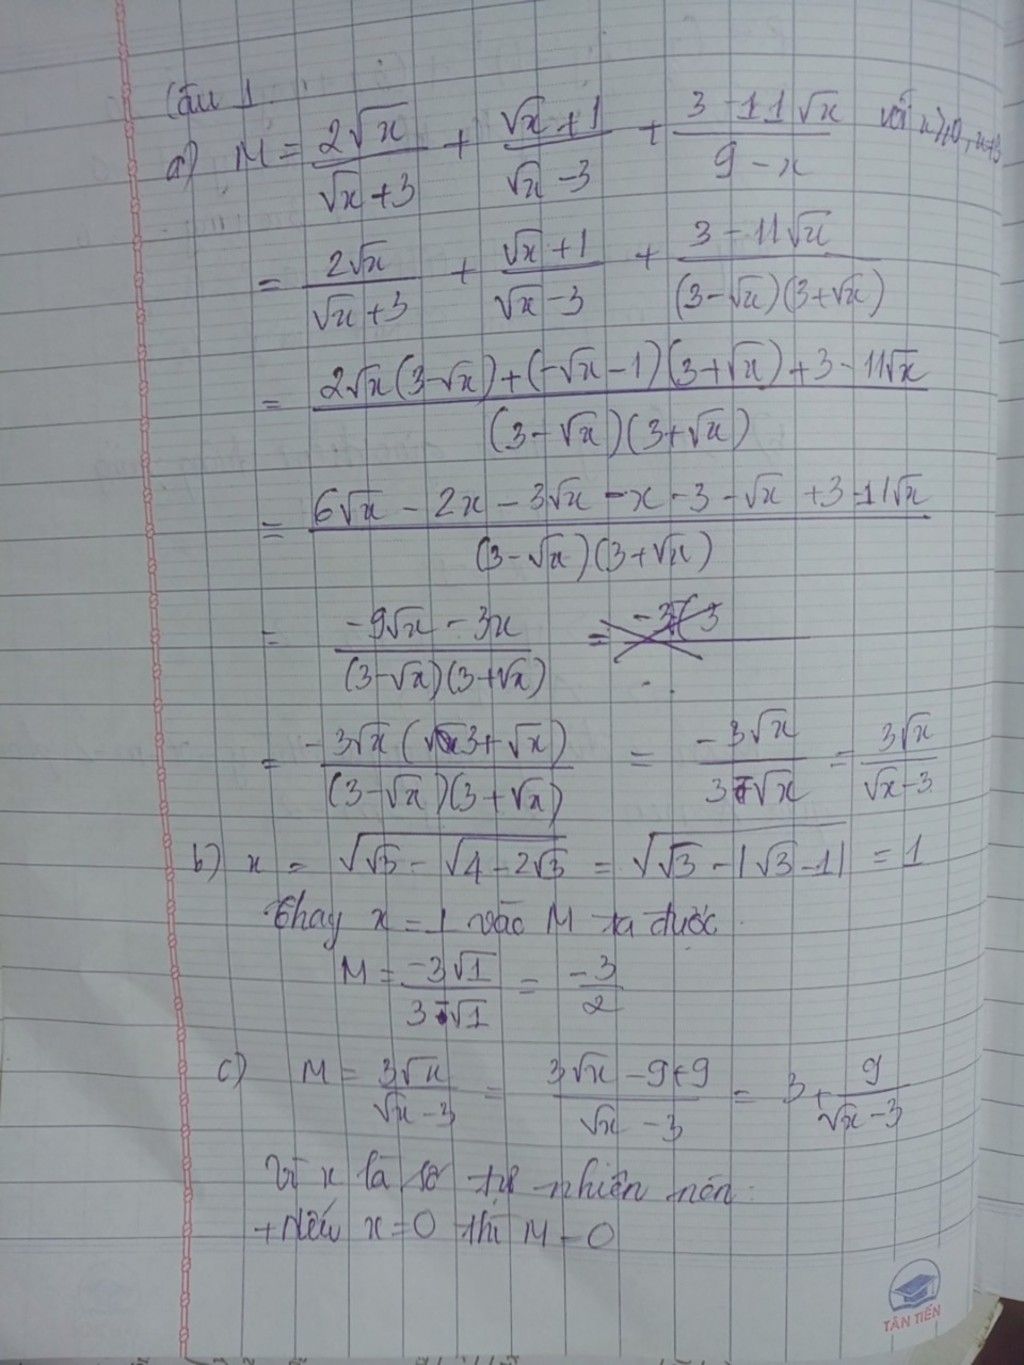 Câu 1.
a) M = 2√x / (√x + 3) + (√x + 1) / (√x - 3) + (3 - 11√x) / (9 - x) với x ≥ 0,
= 2√x / (√x + 3) + (√x + 1) / (√x - 3) + (3 - 11√x) / ((3 - √x)(3 + √x))
= (2√x(3 - √x) + (-√x - 1)(3 + √x) + 3 - 11√x) / ((3 - √x)(3 + √x))
= (6√x - 2x - 3√x - x - 3 - √x + 3 - 11√x) / ((3 - √x)(3 + √x))
= (-9√x - 3x) / ((3 - √x)(3 + √x))
= -3√x(3 + √x) / ((3 - √x)(3 + √x)) = -3√x / (3 - √x) = 3√x / (√x - 3)
b) x = √(√3 - √(4 - 2√3)) = √(√3 - |√3 - 1|) = 1
Thay x = 1 vào M ta được
M = -3√1 / (3 - √1) = -3 / 2
c) M = 3√x / (√x - 3) = (3√x - 9 + 9) / (√x - 3) = 3 + 9 / (√x - 3)
Vì x là số tự nhiên nên:
+ Nếu x = 0 thì M = 0
TÂN TIẾN